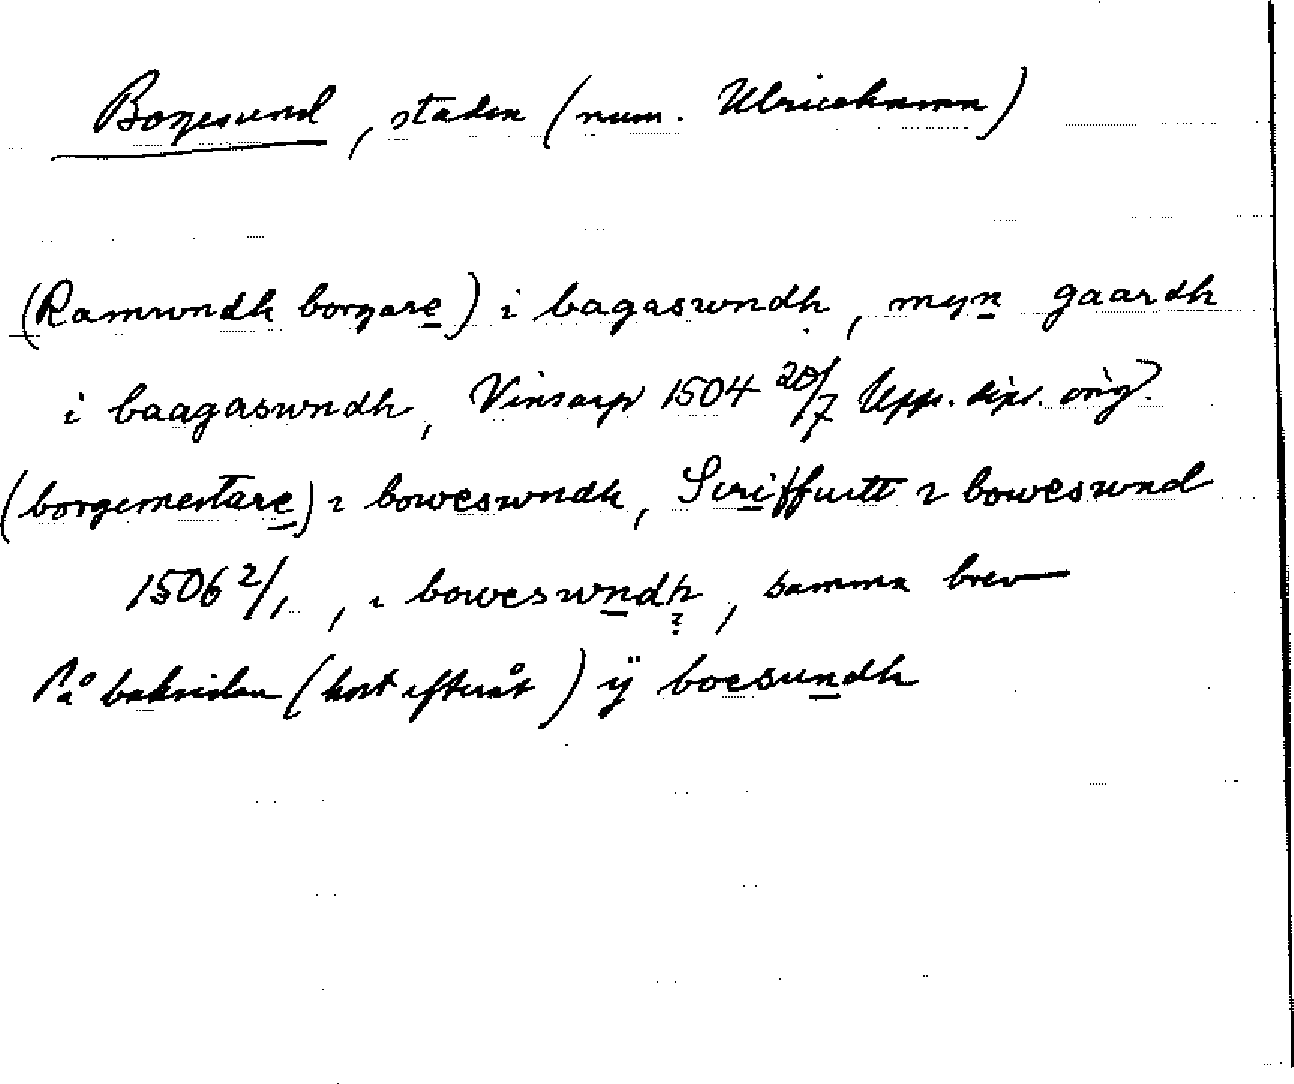 Bogesund, staden (num. Ulricehamn)
(Ramwndh borgare) i bagaswndh, myn gaardh
i baagaswndh, Vinsarp 1504 20/7 Upps. dipl. orig.
(borgemestare) i boweswndh, Scriffuitt i boweswnd
1506 2/1, i boweswndh, samma brev
?
På baksidan (kort efteråt) ÿ boesundh